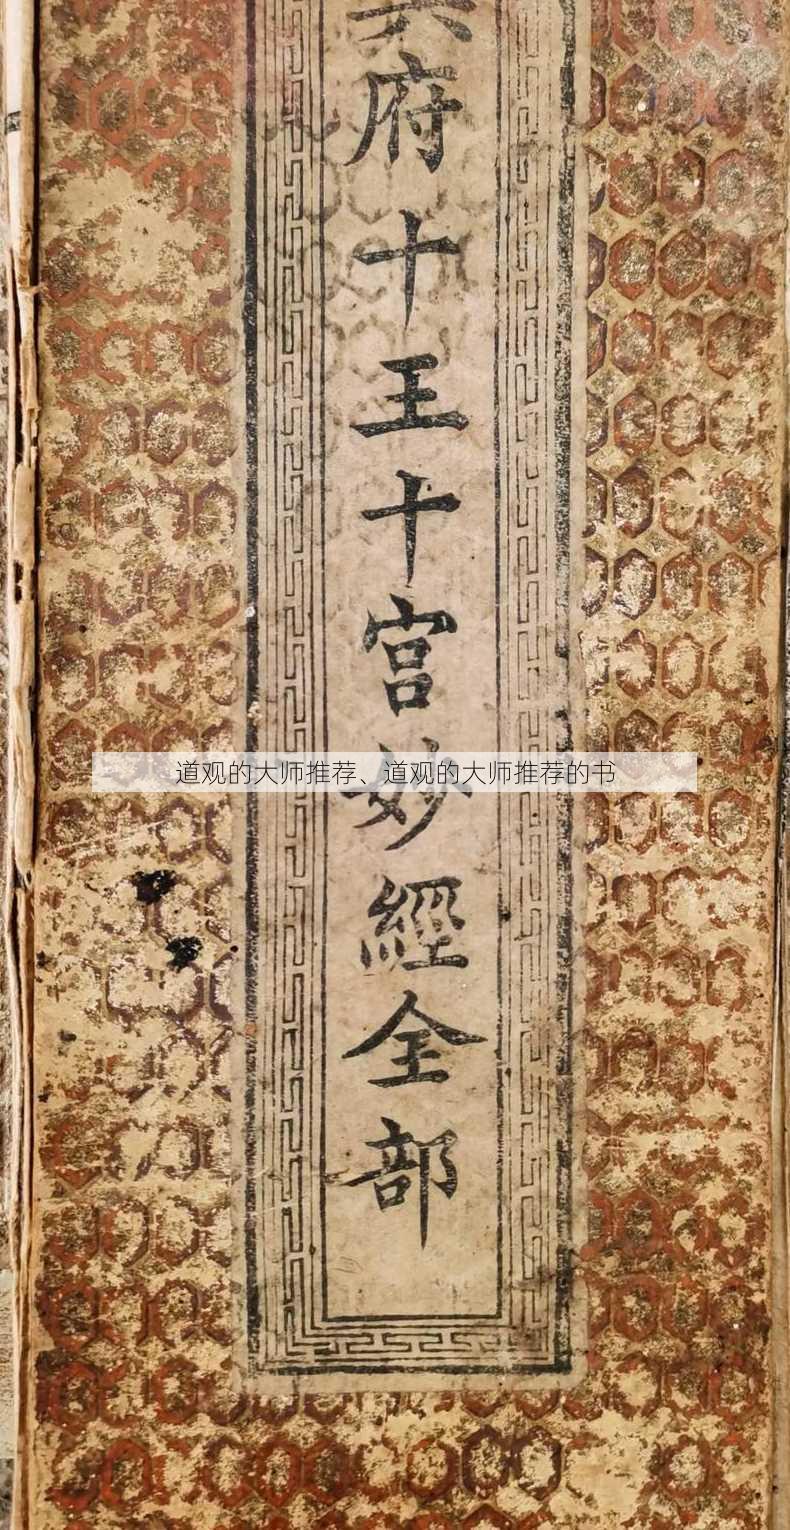 府十王十宫妙經全部
道观的大师推荐、道观的大师推荐的书